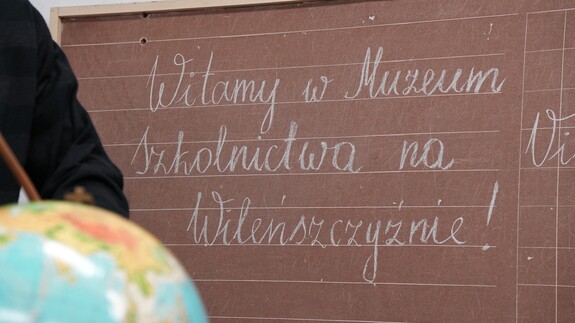 Witamy w Muzeum
Szkolnictwa na
Wileńszczyźnie!
Vi